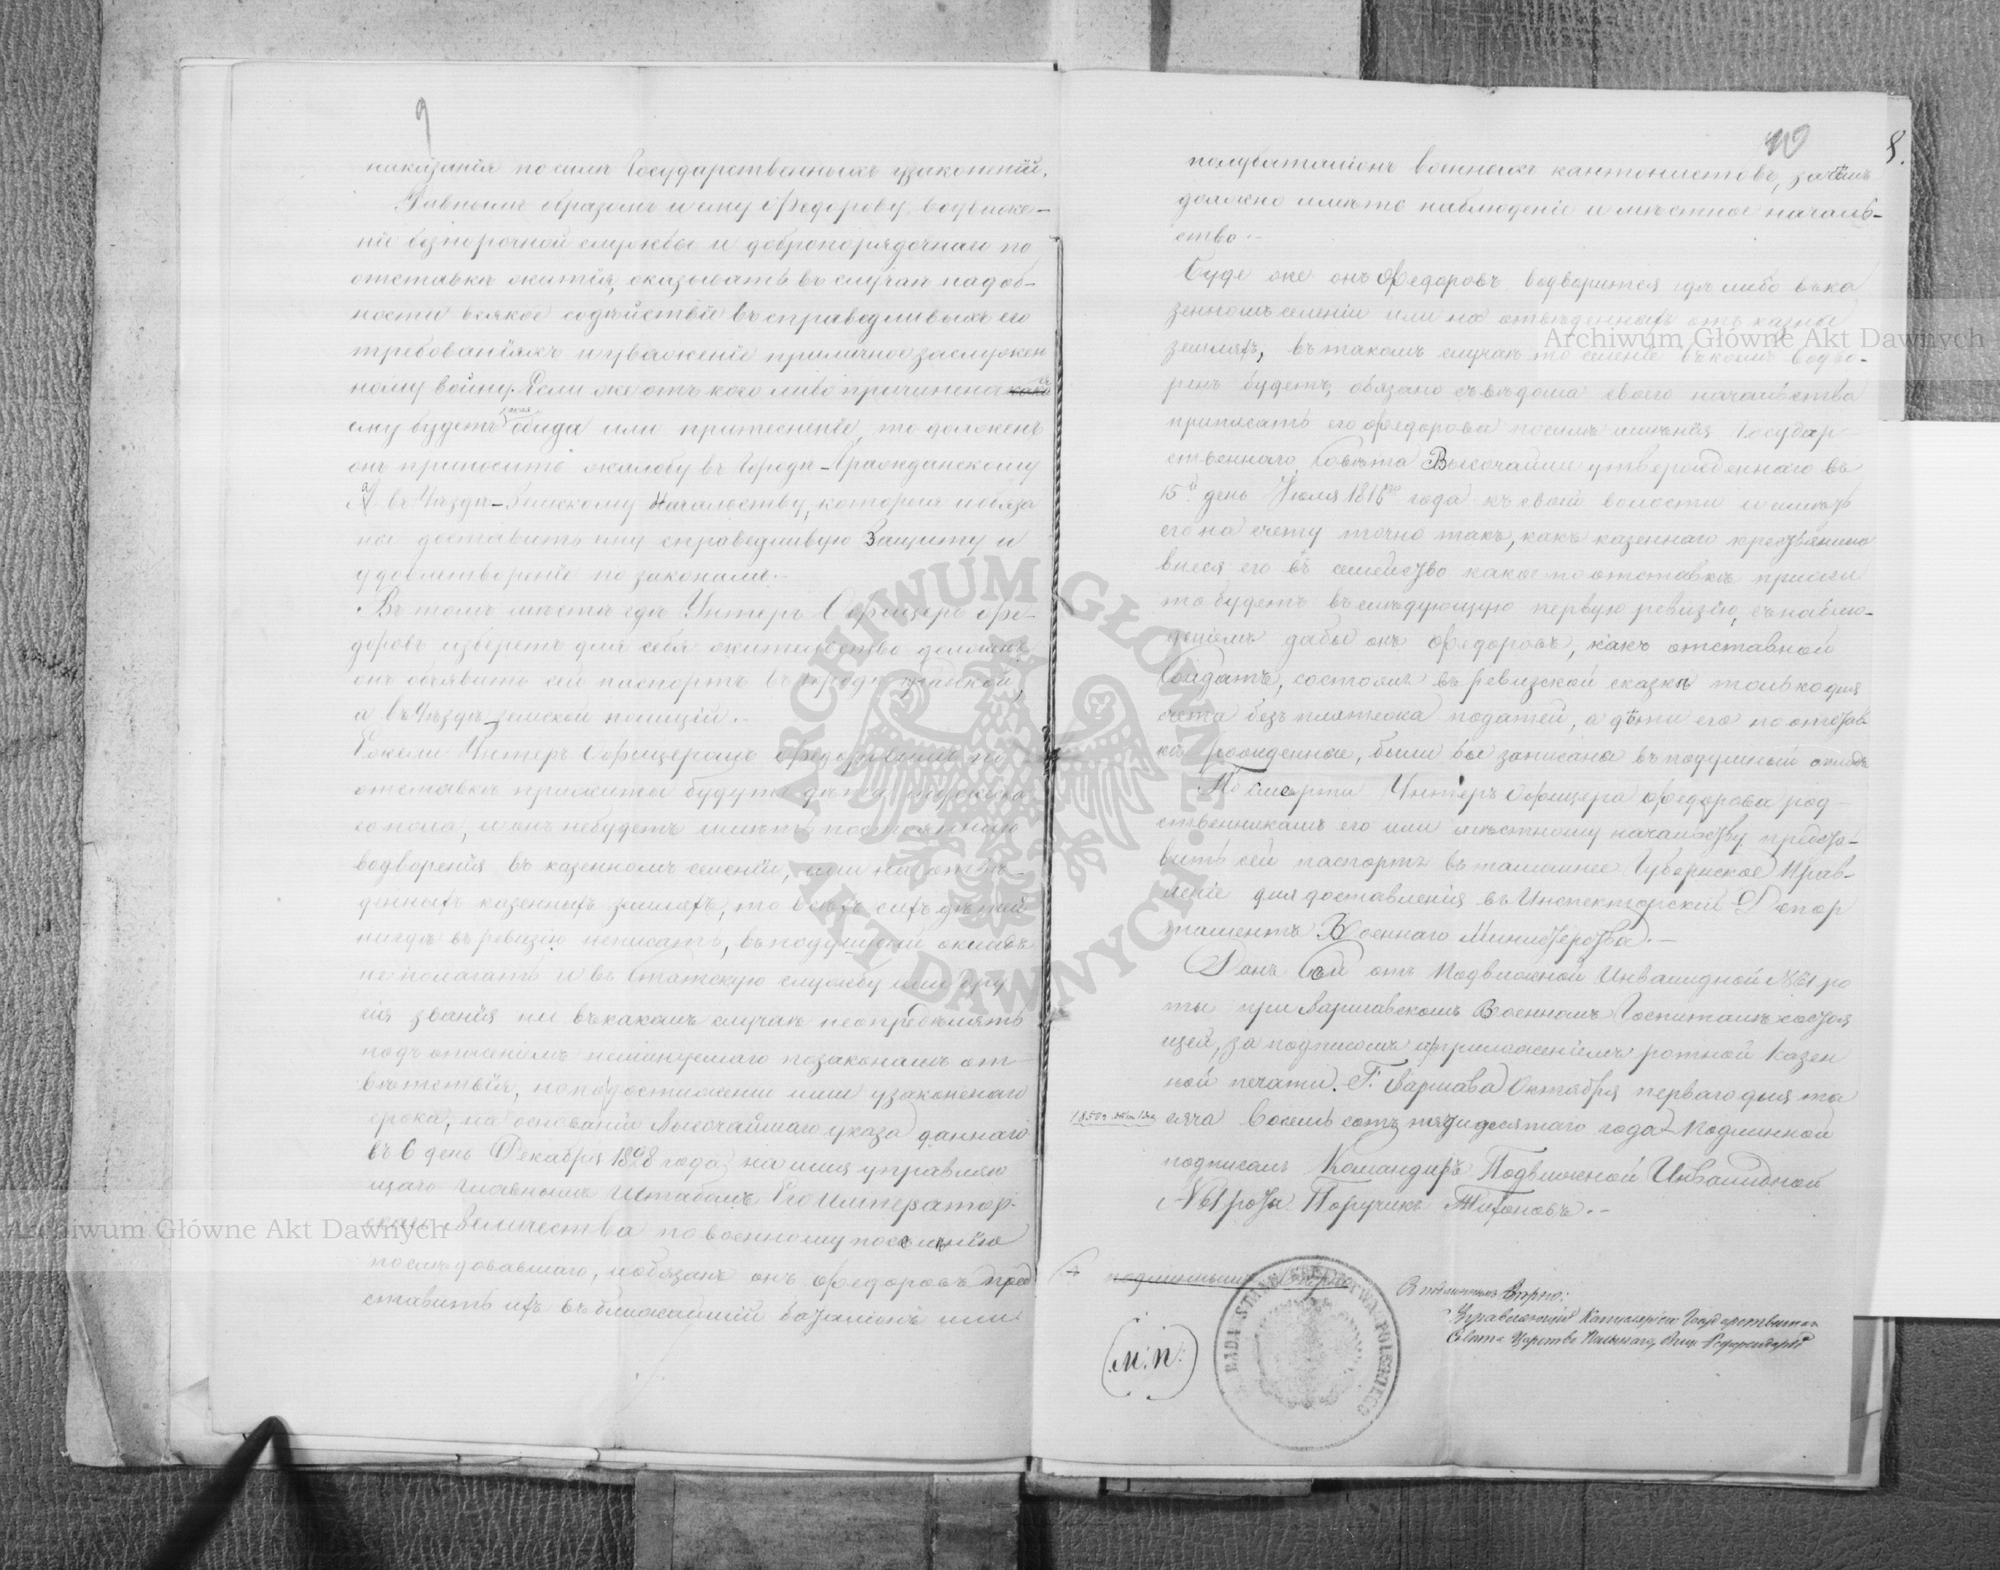 9
наказанія по силѣ Государственныхъ узаконеній.
Равнымъ образомъ и ему Федорову,
ніе безпорочной службы и добропорядочнаго по
отставкѣ житія, оказывать въ случаѣ надоб-
ности всякое содѣйствіе въ справедливыхъ его
требованіяхъ и уваженіе приличное заслужен
ному воину. Если же отъ кого либо причинена
ему будетъ кая обида или притесненіе, то долженъ
онъ приносить жалобу въ Городѣ-Гражданскому
а въ Уѣздѣ-Земскому Начальству, которыя и обяза
ны доставить ему справедливую Защиту и
удовлетвореніе по законамъ.-
Въ томъ мѣстѣ гдѣ Унтеръ Офицеръ Фе-
доровъ изберетъ для себя жительство долженъ
онъ объявить сей паспортъ въ городѣ градской,
а въ Уѣздѣ-земской полиціи.-
Ежели Унтеръ Офицеромъ Федоровымъ по
отставкѣ прижиты будутъ дѣти мужеска
го пола, и онъ небудетъ имѣть постояннаго
водворенія въ казенномъ селеніи, или на отве-
денныхъ казенныхъ земляхъ, то всѣхъ сихъ дѣтей
нигдѣ въ ревизію неписать, въ подушный окладъ
не полагать и въ Статскую службу или дру
гія званія ни въ какомъ случаѣ неопредѣлять
подъ опасеніемъ неминуемаго позаконамъ от-
вѣтствія, но по достиженіи ими узаконенаго
срока, на основаніи Высочайшаго указа даннаго
въ 6 день Декабря 1828 года на имя управляю
щаго Главнымъ Штабомъ Его Император-
скаго Величества по военному поселенію
послѣдовавшаго, и обязанъ онъ Федоровъ пред
ставить ихъ въ ближайшій баталіонъ или
10
8.
полубаталіонъ военныхъ кантонистовъ, за чѣмъ
должно имѣть наблюденіе и мѣстное началь-
ство.-
Буде же онъ Федоровъ водворится гдѣ либо въ ка
зенномъ селеніи или на отведенныхъ отъ казны
земляхъ, въ такомъ случаѣ то селеніе въ коемъ водво-
ренъ будетъ, обязано съ вѣдома своего начальства
приписать его Федорова по силѣ мнѣнія Государ
ственнаго Совѣта Высочайше утвержденнаго въ
15й день Іюля 1816го года къ своей волости и имѣть
его на счету точно такъ, какъ казеннаго крестьянина
внеся его въ семейство какое по отставкѣ прижи
то будетъ въ слѣдующую первую ревизію, съ наблю-
деніемъ дабы онъ Федоровъ, какъ отставной
Солдатъ, состоялъ въ ревизской сказкѣ только для
счета безъ платежа податей, а дѣти его по отстав-
кѣ рожденные, были бы записаны въ подушный окладъ
По смерти Унтеръ Офицера Федорова род-
ственникамъ его или мѣстному начальству предста-
вить сей паспортъ въ тамошнее Губернское Прав-
леніе для доставленія въ Инспекторскій Депар
таментъ Военнаго Министерства.-
Данъ Сей отъ Подвижной Инвалидной №61 ро
ты при Варшавскомъ Военномъ Госпиталѣ состоя
щей, за подписомъ и приложеніемъ ротной Казен
ной печати. Г. Варшава Октября перваго дня ты
сяча Восемь сотъ пятидесятаго года Подлинной
подписалъ Командиръ Подвижной Инвалидной
№61 роты Поручикъ Тихоновъ.-
подлиннымъ вѣрно
(М.П.)
RADA STANU KRÓLESTWA POLSKIEGO
Съ подлиннымъ вѣрно:
Управляющій Канцеляріею Государственнаго
Совѣта Царства Польскаго,
Archiwum Główne Akt Dawnych
Archiwum Główne Akt Dawnych
ARCHIWUM GŁÓWNE AKT DAWNYCH